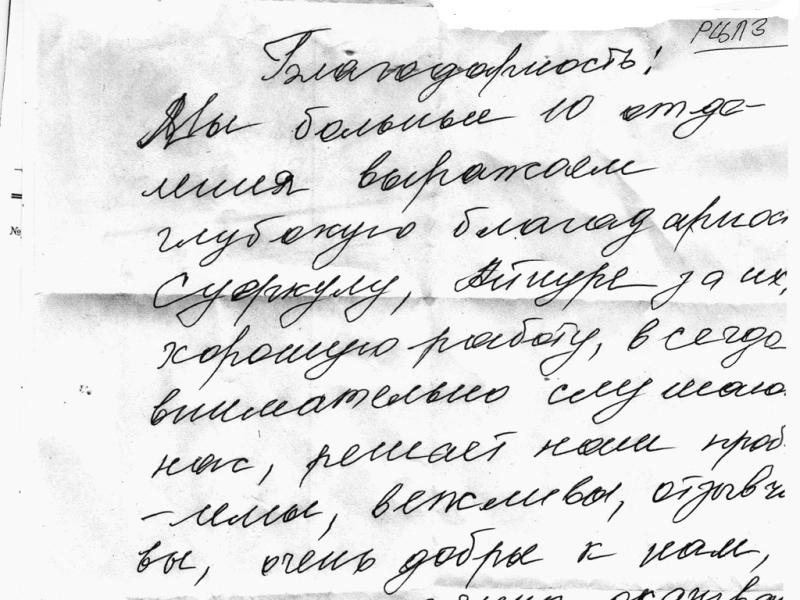 РЦПЗ
Благодарность!
Мы больные 10 отде-
ления выражаем
глубокую благадарнос
Сууркулу, Айнуре за их,
хорошую работу, всегда
внимательно слушаю
нас, решает наши проб
-лемы, вежливы, отзывч
вы, очень добры к нам,
№